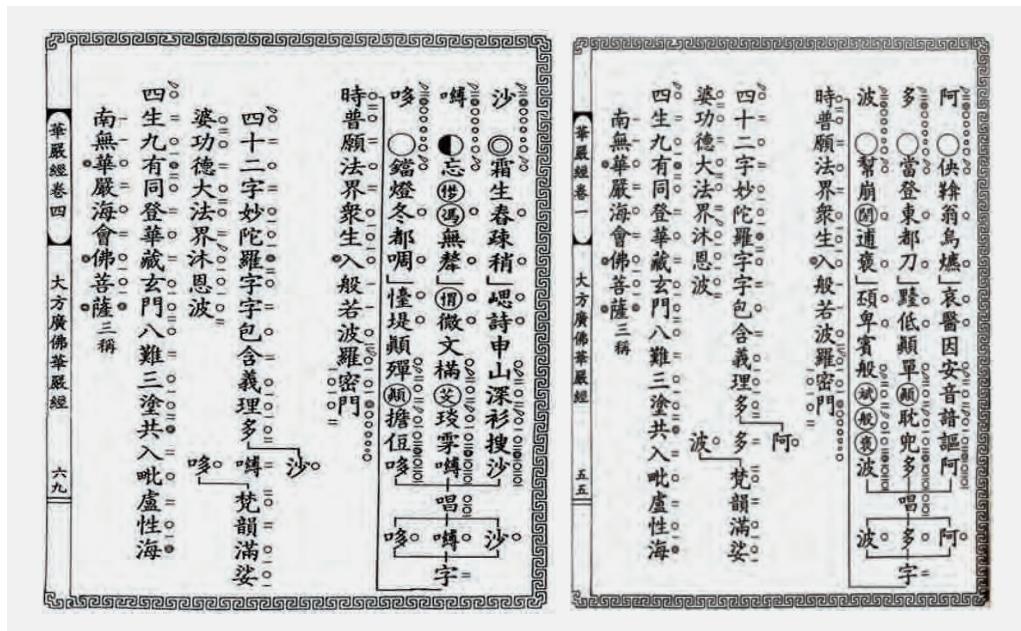 阿 佒鞥翁烏爊」哀醫因安音諳謳阿
多 當登東都刀」低顛單顛耽兜多
波 幫崩逋褒」卑賓般斌般褒波
唱
阿 多 波
字
時普願法界衆生入般若波羅密門
四十二字妙陀羅字字包含義理多
阿 多 波
梵韻滿娑
婆功德大法界沐恩波
四生九有同登華藏玄門八難三塗共入毗盧性海
南無華嚴海會佛菩薩三稱
華嚴經卷一 大方廣佛華嚴經 五五
沙 霜生春疎稍」崽詩申山深衫搜沙
嚩 忘馮無」微文樠琰雺嚩
哆 鐺燈冬都啁」懛堤顛殫顛擔侸哆
唱
沙 嚩 哆
字
時普願法界衆生入般若波羅密門
四十二字妙陀羅字字包含義理多
沙 嚩 哆
梵韻滿娑
婆功德大法界沐恩波
四生九有同登華藏玄門八難三塗共入毗盧性海
南無華嚴海會佛菩薩三稱
華嚴經卷四 大方廣佛華嚴經 六九